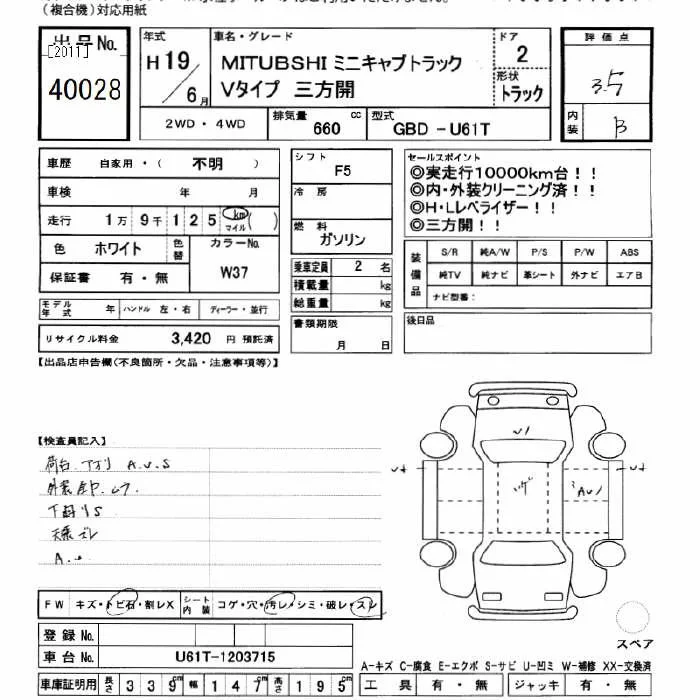 (複合機)対応用紙
出品No.
[2011]
40028
年式
H19/6月
車名・グレード
MITUBSHI ミニキャブトラック
Vタイプ 三方開
ドア
2
形状
トラック
評価点
3.5
内装
B
2WD・4WD
排気量 660 cc
型式 GBD -U61T
車歴 自家用・( 不明 )
車検 年 月
走行 1万 9千 1 2 5 km マイル ( )
色 ホワイト 色替 カラーNo.
W37
保証書 有・無
モデル年式 年 ハンドル 左・右 ディーラー・並行
リサイクル料金 3,420 円 預託済
シフト F5
冷房
燃料 ガソリン
乗車定員 2 名
積載量 kg
総重量 kg
書類期限
月 日
セールスポイント
◎実走行10000km台!!
◎内・外装クリーニング済!!
◎H・Lレベライザー!!
◎三方開!!
装備品
S/R 純A/W P/S P/W ABS
純TV 純ナビ 革シート 外ナビ エアB
ナビ型番:
後日品
【出品店申告欄(不良箇所・欠品・注意事項等)】
【検査員記入】
荷台 アオリ A.U.S
下廻りS
FW キズ・トビ石・割レX シート内装 コゲ・穴・汚レ・シミ・破レ・スレ
登録No.
車台No. U61T-1203715
車庫証明用 長さ 339cm 幅 147cm 高さ 195cm
スペア
A-キズ C-腐食 E-エクボ S-サビ U-凹ミ W-補修 XX-交換済
工具 有・無 ジャッキ 有・無